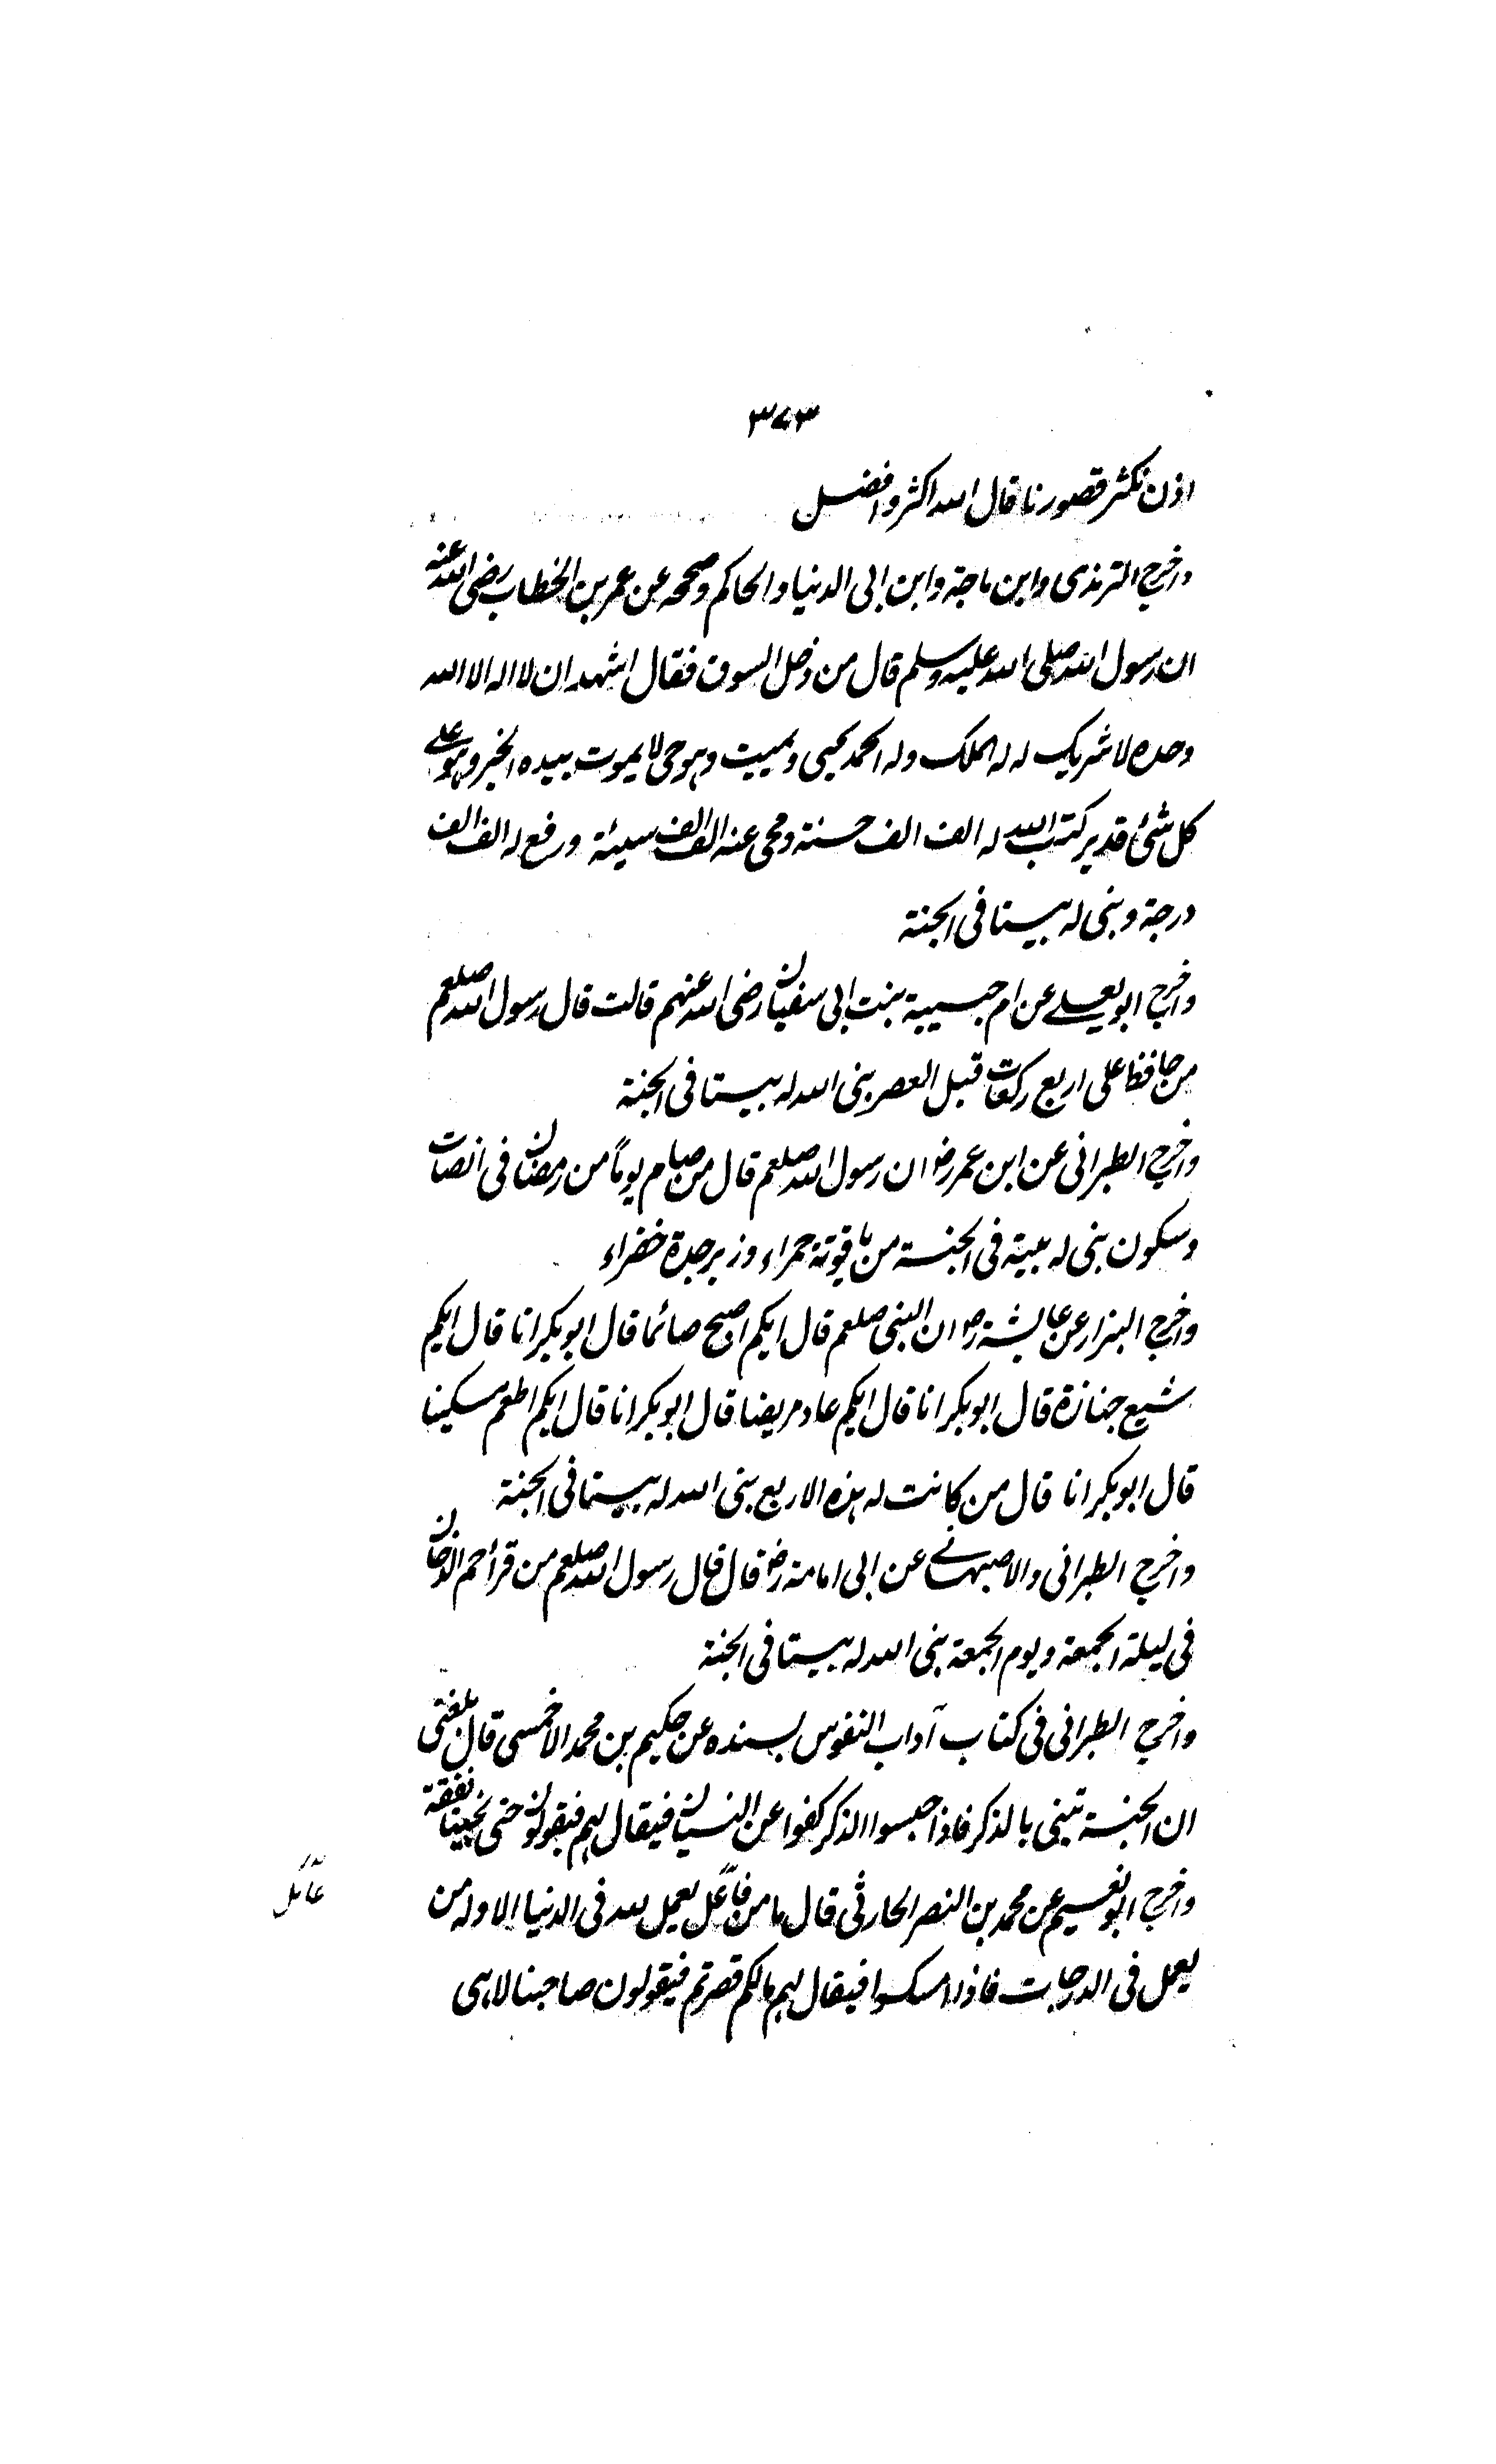 ٣٧٣
اذن نكثر قصورنا قال الله اكثر وافضل
واخرج الترمذى وابن ماجة وابن ابى الدنيا والحاكم وصححه عن عمر بن الخطاب رضى الله عنه
ان رسول الله صلى الله عليه وسلم قال من دخل السوق فقال اشهد ان لا اله الا الله
وحده لا شريك له له الملك وله الحمد يحيى ويميت وهو حى لا يموت بيده الخير وهو على
كل شئ قدير كتب الله له الف الف حسنة ومحى عنه الف الف سيئة ورفع له الف الف
درجة وبنى له بيتا فى الجنة
واخرج ابو يعلے عن ام حبيبة بنت ابى سفيان رضى الله عنهم قالت قال رسول الله صلعم
من حافظ على اربع ركعات قبل العصر بنى الله له بيتا فى الجنة
واخرج الطبرانى عن ابن عمر رضو ان رسول الله صلعم قال من صام يوماً من رمضان فى انصات
وسكون بنى له بيتة فى الجنة من ياقوتة حمراء وزبرجدة خضراء
واخرج البزار عن عايشة رضو ان النبى صلعم قال ايكم اصبح صائما قال ابو بكر انا قال ايكم
شيع جنازة قال ابو بكر انا قال ايكم عاد مريضا قال ابو بكر انا قال ايكم اطعم مسكينا
قال ابو بكر انا قال من كانت له هذه الاربع بنى الله له بيتا فى الجنة
واخرج الطبرانى والاصبهانے عن ابى امامة رضو قال قال رسول الله صلعم من قرأ حم الدخان
فى ليلة الجمعة ويوم الجمعة بنى الله له بيتا فى الجنة
واخرج الطبرانى فى كتاب آداب النفوس بسنده عن حكيم بن محمد الاخمسى قال بلغنى
ان الجنة تبنى بالذكر فاذا حبسوا الذكر كفوا عن البنيان فيقال لهم فيقولون حتى نفقة
واخرج ابو نعيم عن محمد بن النصر الحارثى قال ما من عامل يعمل لله فى الدنيا الا وله من
عامل
يعمل فى الدرجات فاذا امسكوا فيقال لهم مالكم قصرتم فيقولون صاحبنا لاهى